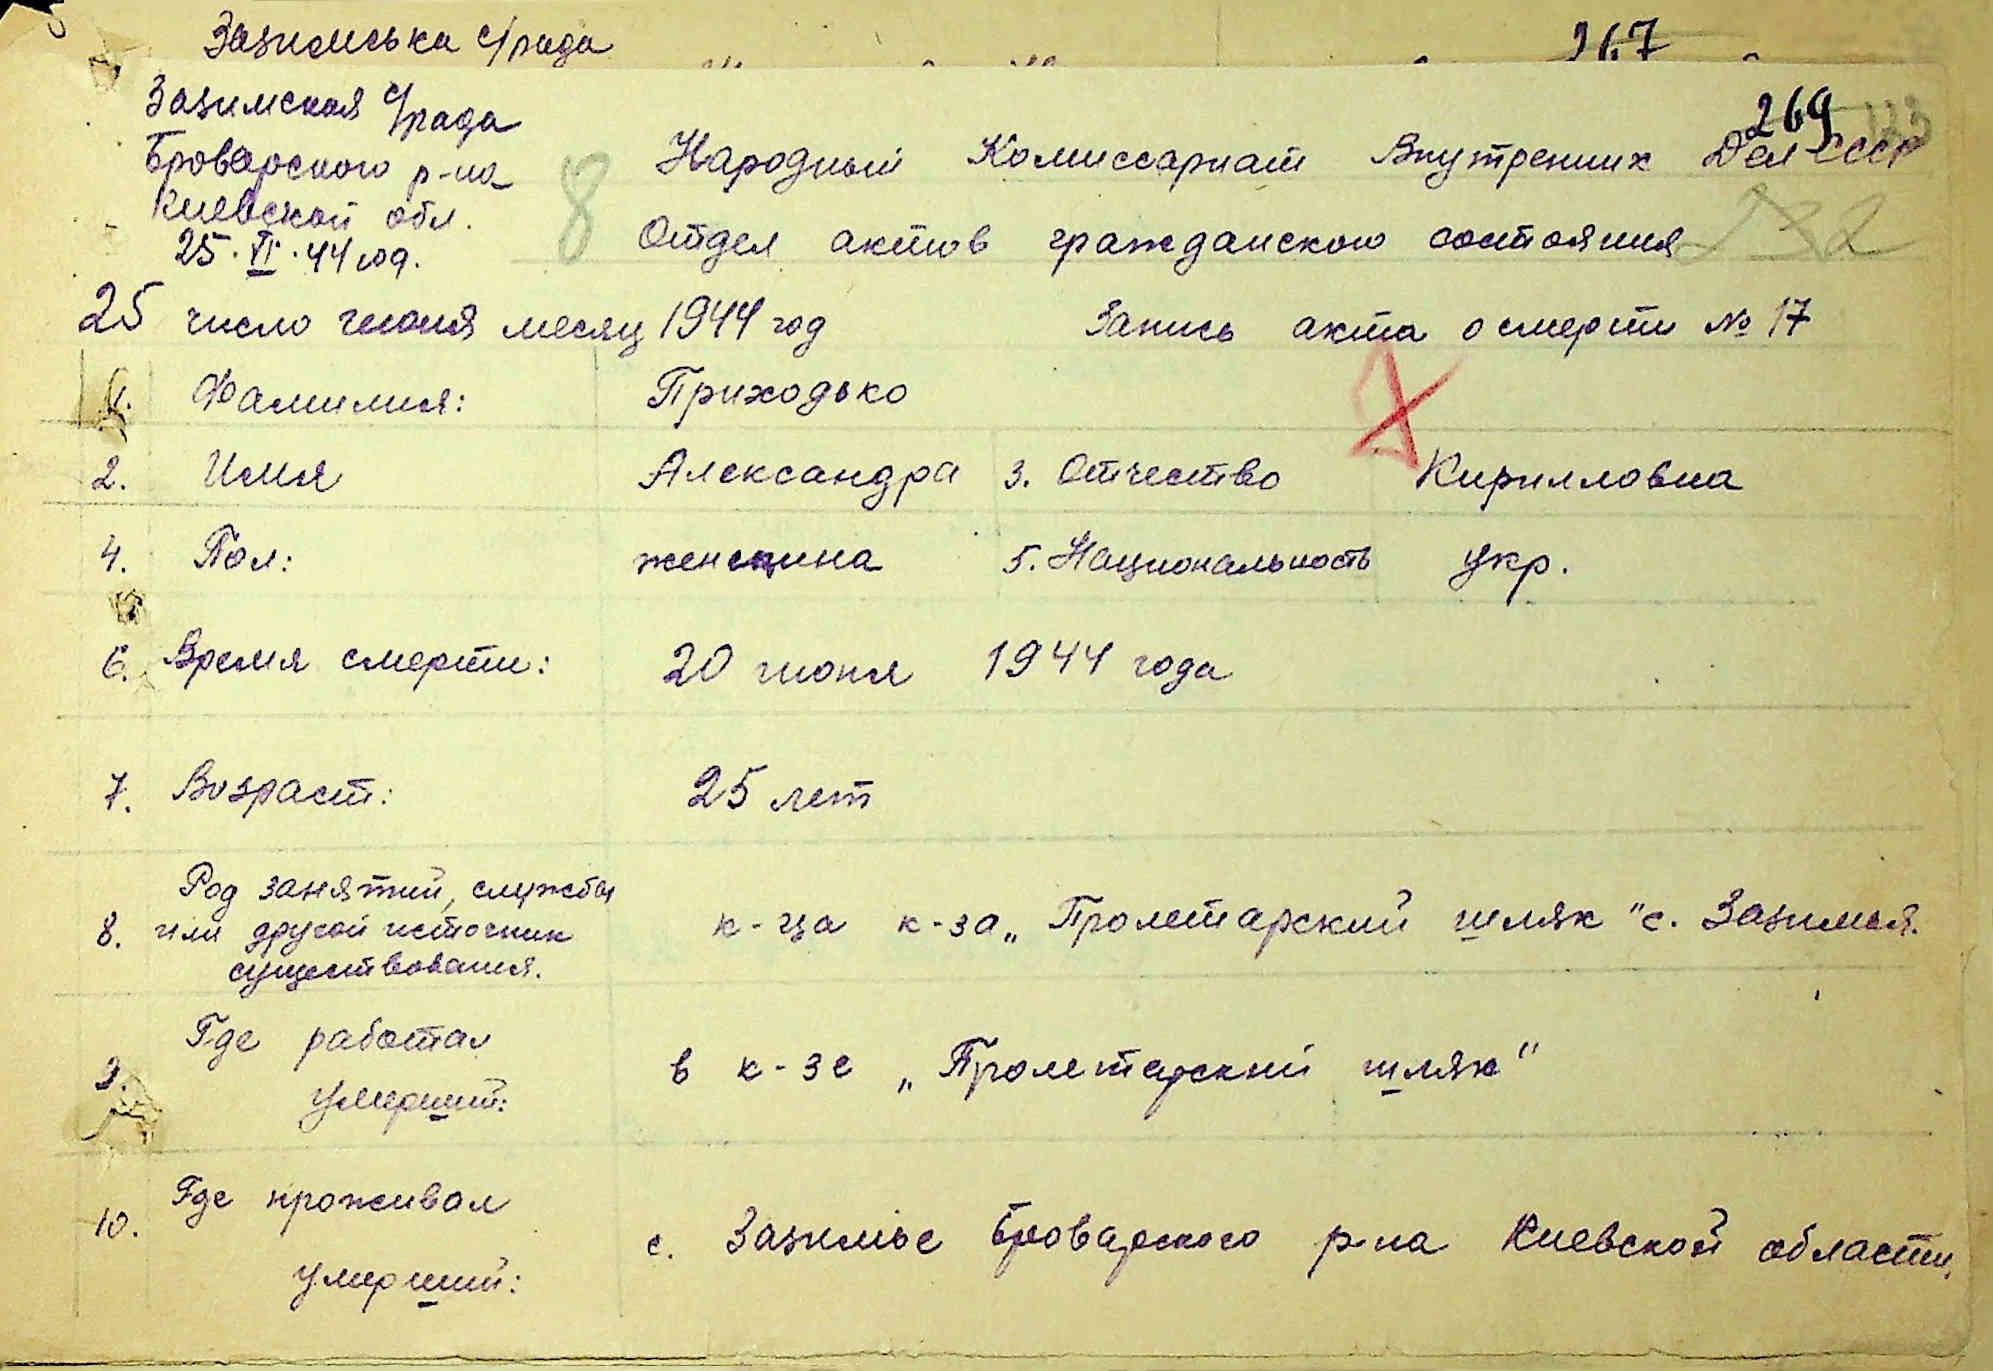 Зазимська с/рада
267
Зазимская с/рада
Броварского р-на
Киевской обл.
25. VI. 44 год.
8
269
Народный Комиссариат Внутренних Дел СССР
Отдел актов гражданского состояния
25 число июня месяц 1944 год
Запись акта о смерти № 17
1. Фамилия: Приходько
2. Имя Александра 3. Отчество Кирилловна
4. Пол: женщина 5. Национальность Укр.
6. Время смерти: 20 июня 1944 года
7. Возраст: 25 лет
Род занятий, службы
8. или другой источник к-ца к-за „Пролетарский шлях" с. Зазимья.
существования.
Где работал
9. в к-зе „Пролетарский шлях"
умерший:
Где проживал
10. с. Зазимье Броварского р-на Киевской области.
умерший: